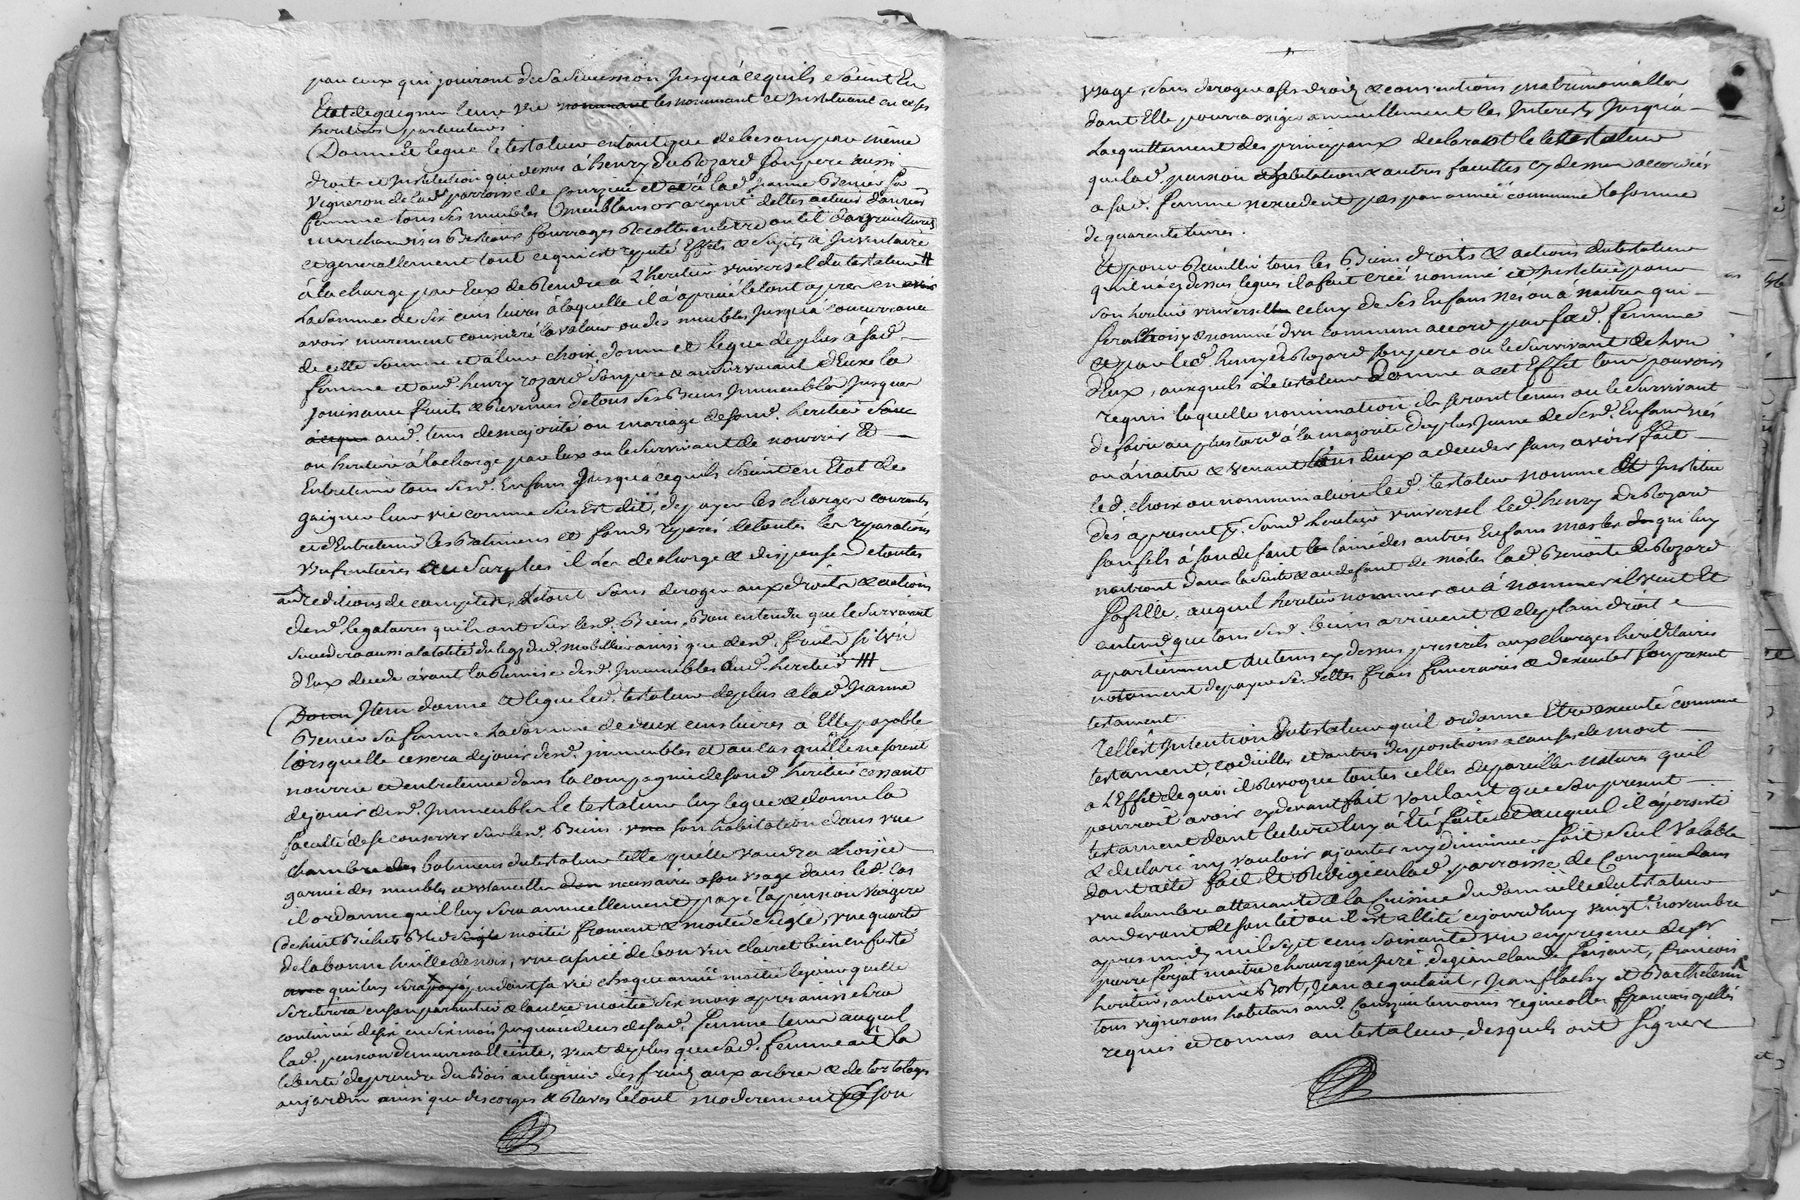 par eux qui jouiront de sa succession Jusqu'a ce quils soient En
Etat de gaigner leur vie les nommant et Instituant en ce ses
heritiers particuliers
Donne Et legue le testateur en l'antique de besoin par même
droit et Institution que dessus à henry Du Rozard son pere aussi
Vigneron de lad. parroisse de Courzieu et à lad. Jeanne Benier sa
femme tous ses meubles or argent dettes actives danrées
marchandises Bestiaux fourrages Recoltes en terre outils d'agricultures
et generallement tout ce qui est reputé Effets & Sujets a Inventaire
à la charge par Eux de Rendre a l'heritier universel du testateur #
La somme de Six cens livres à laquelle il à aprecié le tout apres en
avoir murement consideré la valeur ou des meubles jusqu'a concurrance
de cette somme et à leur choix, donne et legue de plus à sad.
femme et aud. henry rozard son pere & au survivant d'Eux la
jouissance fruits & Revenus de tous ses Biens Immeubles Jusques
aud. tems de majorité ou mariage de sond. heritier
ou heritiere à la charge par Eux ou le survivant de nourrir Et
Entretenir tous sesd. Enfans Jusqu'à ce quils soient en Etat de
gaigner leur vie comme sus Est dit, de payer les charges courantes
et d'Entretenir les Batimens et fonds de toutes les reparations
Usufruitieres au Surplus il les decharge & dispense de toutes
redditions de comptes, le tout sans deroger aux droits & actions
desd. legataires qu'ils ont sur lesd. Biens, Bien entendu que le survivant
succedera aussi a la totalité du legs dud. mobillier ainsi que desd. fruits si l'un
d'Eux decede avant la Remise desd. Immeubles aud. heritier ###
Item donne et legue led. testateur de plus a lad. Jeanne
Benier sa femme La somme de deux cens livres à Elle payable
lorsquelle cessera de jouir desd. immeubles et au cas quelle ne soient
nourrie et entretenue dans la compagnie de sond. heritier cessant
de jouir desd. Immeubles le testateur luy legue & donne la
faculté de se conserver sur lesd. Biens son habitation dans une
chambre des batimens du testateur telle quelle voudra choisir
garnie des meubles et ustancilles necessaires a son usage dans led. cas
il ordonne qu'il luy sera annuellement payé la pension viagere
de huit Bichets Bled moitié froment & moitié seigle, une quarte
de la bonne huille de noix, une asnée de bon vin clairet bien enfusté
qui luy sera payé pendant sa vie chaque année moitié le jour quelle
se retirera en son particulier & l'autre moitié six mois apres ainsi sera
continué de six en six mois jusqu'au deces de sad. femme tems auquel
lad. pension demeurera Eteinte, veut de plus que sad. femme ait la
liberté de prendre du Bois au bucher des fruits aux arbres & de l'ortolage
au jardin ainsi que des corges & Raves le tout moderement à son
usage, sans deroger a ses droits & conventions matrimonialles
dont Elle pourra exiger annuellement les Interets Jusqu'a
Lacquittement des principaux declarant le testateur
que lad. pension habitation & autres facultés cy dessus accordées
a sad. femme n'excedent pas par année commune la somme
de quarente livres.
Et pour Recuillir tous les Biens droits & actions du testateur
qu'il n'a cy dessus legués il a fait créé nommé et Institué pour
son heritier universelle celluy de ses Enfans nés ou à naitre qui
sera choisy & nommé d'un commun accord par sad. femme
et par led. henry de Rozard son pere ou le survivant de l'un
d'Eux, auxquels le testateur donne a cet Effet tout pouvoir
requis laquelle nomination ils seront tenus ou le survivant
de faire au plus tard à la majorité du plus Jeune de sesd. Enfans nés
ou à naitre & venant tous deux a deceder sans avoir fait
led. choix ou nommination led. testateur nomme Et Institue
dés apresent pr. sond. heritier universel led. henry De Rozard
son fils à son defaut l'ainé des autres Enfans masles qui luy
naitront dans la suite & au defaut de mâles lad. Benoite De Rozard
sa fille, auquel heritier nommé ou à nommer il veut Et
entend que tous sesd. biens arrivent & de plain droit
apartiennent du tems cy dessus prescrit aux charges hereditaires
notament de payer ses dettes frais funeraires & d'executer son present
testament.
Telle est Intention du testateur qu'il ordonne Etre executé comme
testament, codicilles et autres dispositions a cause de mort
a L'Effet de quoi il Revoque toutes celles de pareilles natures qu'il
pourroit avoir cy devant fait voulant que son present
testament dont lecture luy à Eté faite Et auquel il à persisté
& declaré n'y vouloir ajouter ny diminuer soit seul Valable
dont acte fait Et Redigé en lad. parroisse de Courzieu dans
une chambre attenante à la Cuisine du domicille du testateur
au devant de son lit ou il est allité cejourd'huy vingt novembre
apres midy mil sept cens soixante un en presence de sr
pierre forjat maitre chirurgien juré, de jean claude foisant, françois
heritier, antoine Bost, Jean acquilant, Jean flachy et Barthelemi
tous vignerons habitans aud. Courzieu temoins
requis et connus au testateur, desquels ont signer